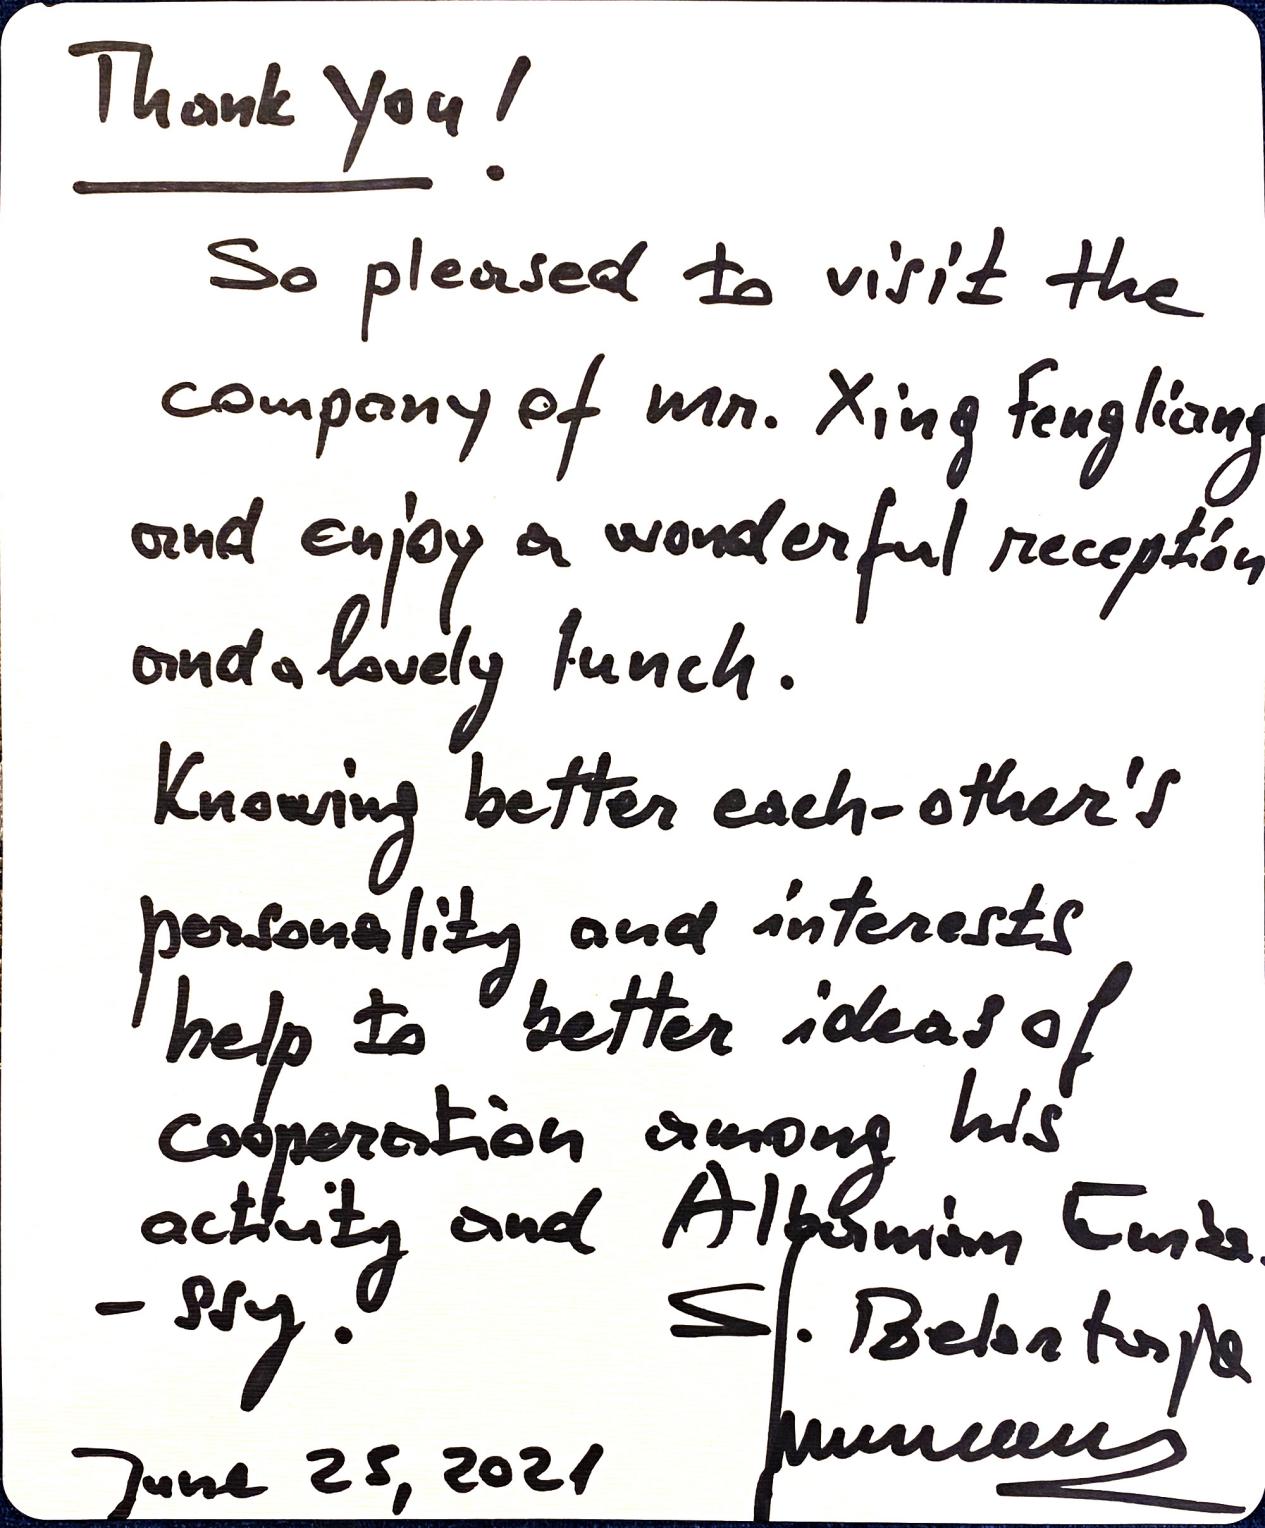 Thank You!
So pleased to visit the
company of mr. Xing Fengliang
and enjoy a wonderful reception
and a lovely lunch.
Knowing better each-other's
personality and interests
help to better ideas of
cooperation among his
activity and Albanian Emba.
- ssy.
S. Belortaja
June 25, 2021